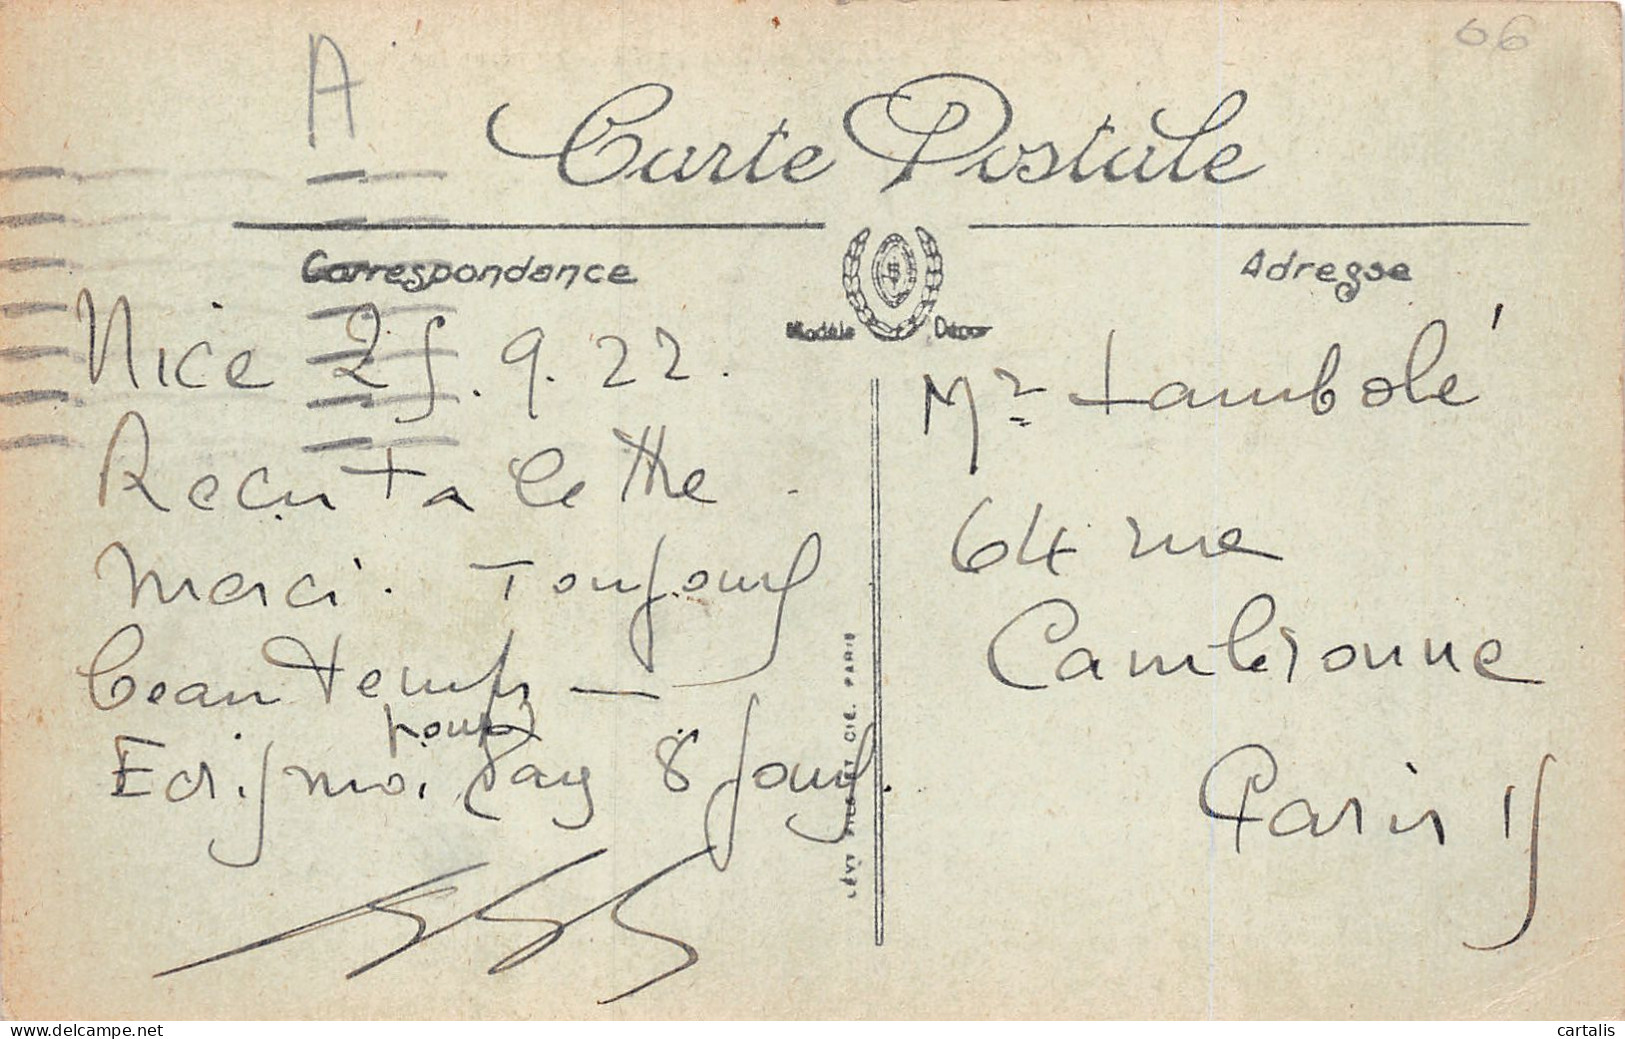 A
06
Carte Postale
Correspondance
Adresse
Modèle Déposé
Nice 25.9.22.
Recu ta lettre
merci. Toujours
beau temps —
pour
Ecris moi 8 jours.
Mr Lambolé
64 rue
Cambronne
Paris 15
LÉVY FILS ET CIE. PARIS
cartalis
www.delcampe.net